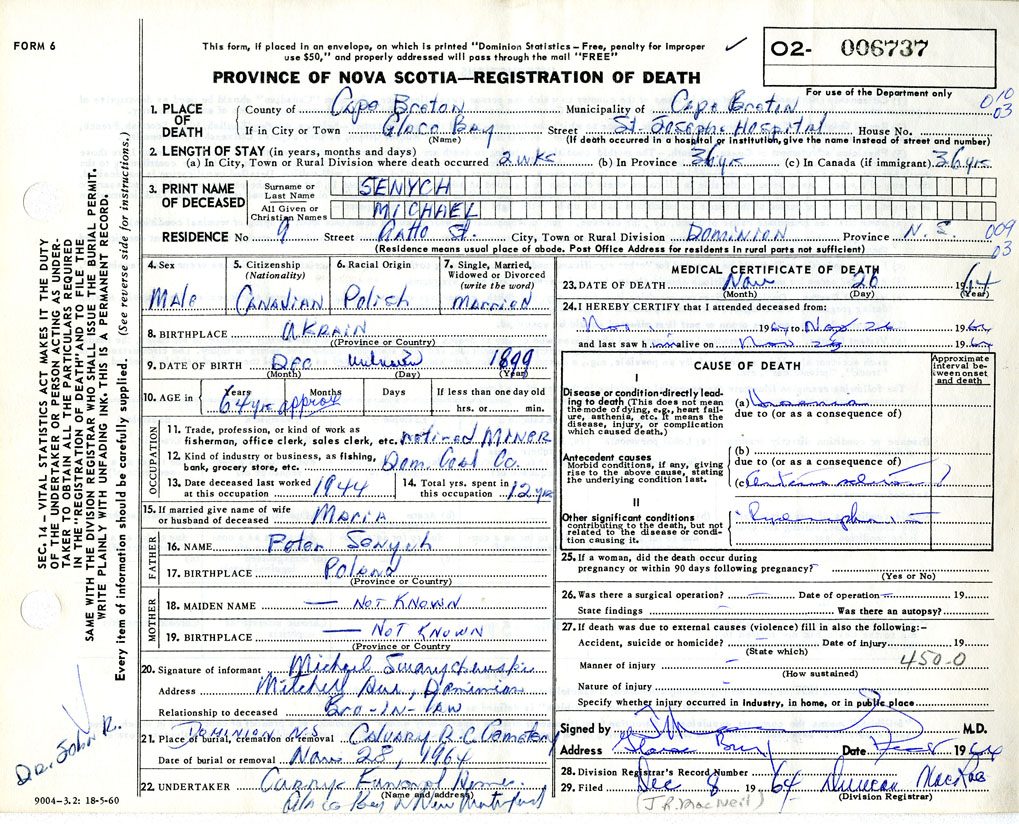 FORM 6
This form, if placed in an envelope, on which is printed "Dominion Statistics – Free, penalty for improper
use $50," and properly addressed will pass through the mail "FREE"
O2- 006737
For use of the Department only
PROVINCE OF NOVA SCOTIA—REGISTRATION OF DEATH
010
03
1. PLACE OF DEATH
County of Cape Breton Municipality of Cape Breton
If in City or Town Glace Bay Street St. Josephs Hospital House No.
(Name) (If death occurred in a hospital or institution, give the name instead of street and number)
2. LENGTH OF STAY (in years, months and days)
(a) In City, Town or Rural Division where death occurred 2 wks (b) In Province 36 yr (c) In Canada (if immigrant) 36 yr
3. PRINT NAME OF DECEASED
Surname or Last Name SENYCH
All Given or Christian Names MICHAEL
RESIDENCE No 9 Street St. City, Town or Rural Division DOMINION Province N.S.
009
03
(Residence means usual place of abode. Post Office Address for residents in rural parts not sufficient)
4. Sex Male
5. Citizenship (Nationality) CANADIAN
6. Racial Origin Polish
7. Single, Married, Widowed or Divorced (write the word) MARRIED
8. BIRTHPLACE UKRAIN
(Province or Country)
9. DATE OF BIRTH Dec unknown 1899
(Month) (Day) (Year)
10. AGE in Years Months Days If less than one day old
64 yr approx hrs. or min.
OCCUPATION
11. Trade, profession, or kind of work as
fisherman, office clerk, sales clerk, etc. retired MINER
12. Kind of industry or business, as fishing,
bank, grocery store, etc. Dom. Coal Co.
13. Date deceased last worked
at this occupation 1944
14. Total yrs. spent in
this occupation 12 yr
15. If married give name of wife
or husband of deceased Maria
FATHER
16. NAME Peter Senych
17. BIRTHPLACE Poland
(Province or Country)
MOTHER
18. MAIDEN NAME — NOT KNOWN
19. BIRTHPLACE — NOT KNOWN
(Province or Country)
20. Signature of informant Michael
Address Mitchell Ave, Dominion
Relationship to deceased Bro-IN-LAW
21. Place of burial, cremation or removal DOMINION N.S. Calvary R.C. Cemetery
Date of burial or removal Nov. 28, 1964
22. UNDERTAKER Curry Funeral Home.
(Name and address) Glace Bay & New Waterford
MEDICAL CERTIFICATE OF DEATH
23. DATE OF DEATH Nov 26 1964
(Month) (Day) (Year)
24. I HEREBY CERTIFY that I attended deceased from:
Nov 1 1964 to Nov 26 1964
and last saw him alive on Nov 1964
CAUSE OF DEATH
Approximate interval between onset and death
I
Disease or condition directly leading to death (This does not mean the mode of dying, e.g., heart failure, asthenia, etc. It means the disease, injury, or complication which caused death.)
(a) uraemia
due to (or as a consequence of)
Antecedent causes
Morbid conditions, if any, giving rise to the above cause, stating the underlying condition last.
(b)
due to (or as a consequence of)
(c)
II
Other significant conditions contributing to the death, but not related to the disease or condition causing it.
25. If a woman, did the death occur during
pregnancy or within 90 days following pregnancy?
(Yes or No)
26. Was there a surgical operation? — Date of operation — 19
State findings Was there an autopsy?
27. If death was due to external causes (violence) fill in also the following:–
Accident, suicide or homicide? — Date of injury 19
(State which)
Manner of injury — 450-0
(How sustained)
Nature of injury —
Specify whether injury occurred in industry, in home, or in public place
Signed by M.D.
Address Glace Bay Date 1964
28. Division Registrar's Record Number
29. Filed Dec 8 1964 Duncan MacRae
(J.R. MacNeil) (Division Registrar)
SEC. 14 – VITAL STATISTICS ACT MAKES IT THE DUTY
OF THE UNDERTAKER OR PERSON ACTING AS UNDER-
TAKER TO OBTAIN ALL THE PARTICULARS REQUIRED
IN THE "REGISTRATION OF DEATH" AND TO FILE THE
SAME WITH THE DIVISION REGISTRAR WHO SHALL ISSUE THE BURIAL PERMIT.
WRITE PLAINLY WITH UNFADING INK. THIS IS A PERMANENT RECORD.
Every item of information should be carefully supplied. (See reverse side for instructions.)
Dr. John R.
9004-3.2: 18-5-60